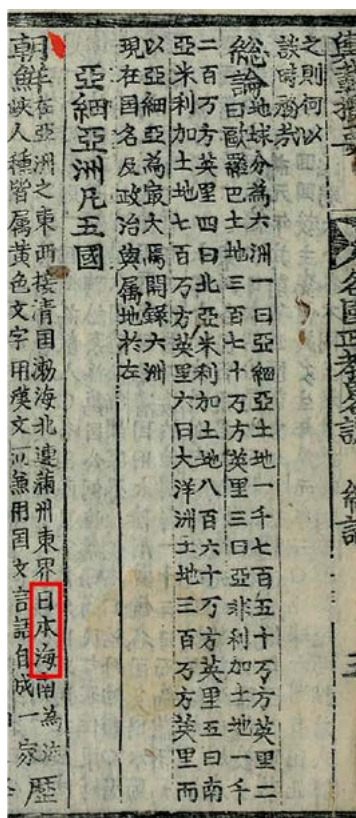 各國政 畧說 總論 三
之則何以
談時務哉
総論 地球分為六洲一曰亞細亞土地一千七百五十万方英里二
曰歐羅巴土地三百七十万方英里三曰亞非利加土地一千
二百万方英里四曰北亞米利加土地八百六十万方英里五曰南
亞米利加土地七百万方英里六曰大洋洲土地三百万方英里而
以亞細亞為最大焉開錄六洲
現在国名及政治與属地於左
亞細亞洲凡五國
朝鮮 在亞洲之東西接清国渤海北連満州東界日本海南為海
峽人種皆属黄色文字用漢文而兼用国文言語自成一家 歴